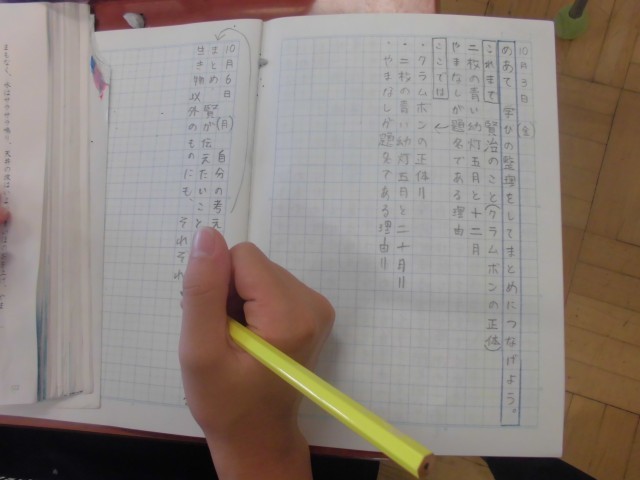 10月3日(金)
めあて 学びの整理をしてまとめにつなげよう。
これまで 賢治のこと(クラムボンの正体)
二枚の青い幻灯五月と十二月
やまなしが題名である理由
ここでは
・クラムボンの正体=
・二枚の青い幻灯五月と二十月=
・やまなしが題名である理由=
10月6日(月) 自分の考え
まとめ 賢が伝えたいこと
生き物以外のものにも、それぞれ